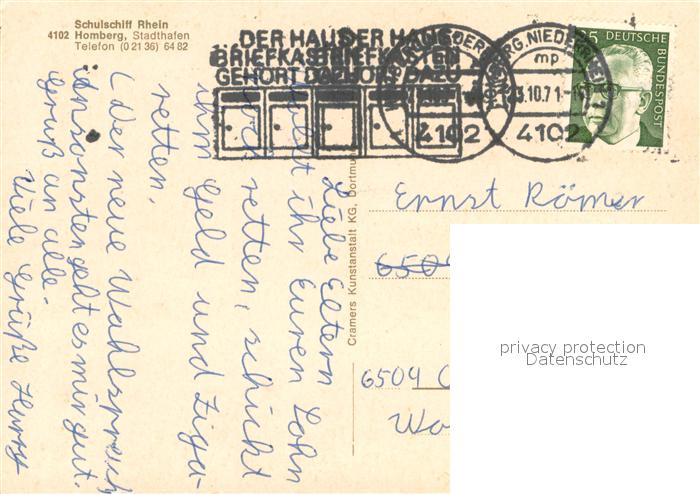 Schulschiff Rhein
4102 Homberg, Stadthafen
Telefon (0 21 36) 64 82
DER HAUSDER HAUS-
BRIEFKASTBRIEFKASTEN
GEHÖRT DAZUHÖRT DAZU
HOMBERG, NIEDERRHEIN 1
mp
.10.71-
4102
4102
35 DEUTSCHE
BUNDESPOST
Liebe Eltern
wollt ihr Euren Sohn
noch retten, schickt
ihm Geld und Ziga-
retten.
(Der neue Wahlspruch
Ansonsten geht es mir gut.
Gruß an alle.
Viele Grüße Harry
Cramers Kunstanstalt KG, Dortmund
Ernst Römer
6504
6504
privacy protection
Datenschutz